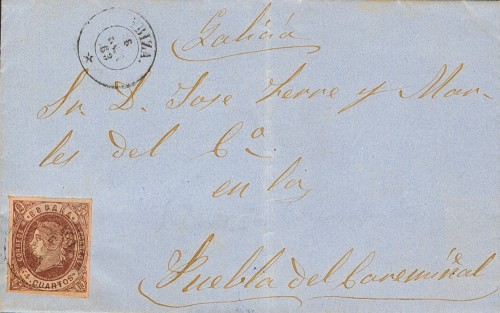 IBIZA
6
63
Galicia
Sr. D. Jose Ferre y Mar-
les del Cº
en la
Puebla del Caremiñal
CORREOS ESPAÑA
4 CUARTOS